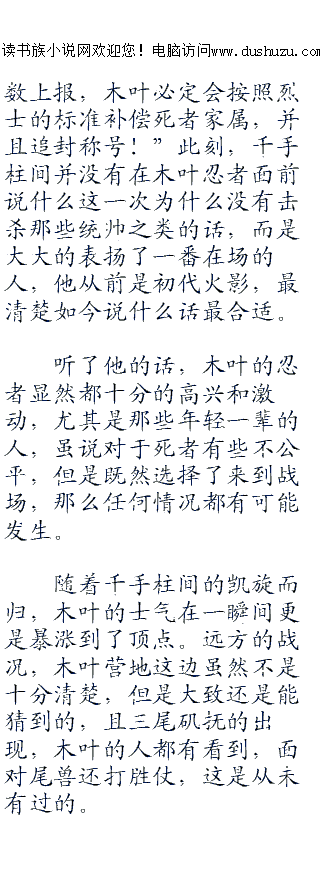 读书族小说网欢迎您！电脑访问www.dushuzu.com
数上报，木叶必定会按照烈
士的标准补偿死者家属，并
且追封称号！”此刻，千手
柱间并没有在木叶忍者面前
说什么这一次为什么没有击
杀那些统帅之类的话，而是
大大的表扬了一番在场的
人，他从前是初代火影，最
清楚如今说什么话最合适。
听了他的话，木叶的忍
者显然都十分的高兴和激
动，尤其是那些年轻一辈的
人，虽说对于死者有些不公
平，但是既然选择了来到战
场，那么任何情况都有可能
发生。
随着千手柱间的凯旋而
归，木叶的士气在一瞬间更
是暴涨到了顶点。远方的战
况，木叶营地这边虽然不是
十分清楚，但是大致还是能
猜到的，且三尾矶抚的出
现，木叶的人都有看到，面
对尾兽还打胜仗，这是从未
有过的。